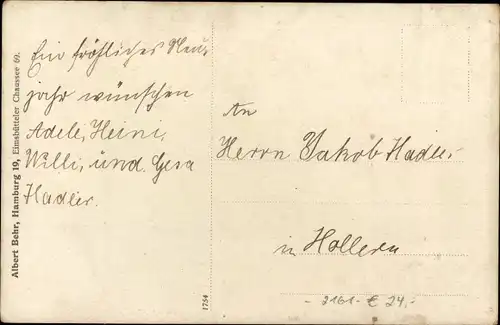 Albert Behr, Hamburg 19, Eimsbütteler Chaussee 69.
Ein fröhliches Neu-
jahr wünschen
Adele, Heini,
Willi, und Gesa
Hadler.
An
Herrn Jakob Hadler
in Hollern
1754
- 2161 - € 24,-